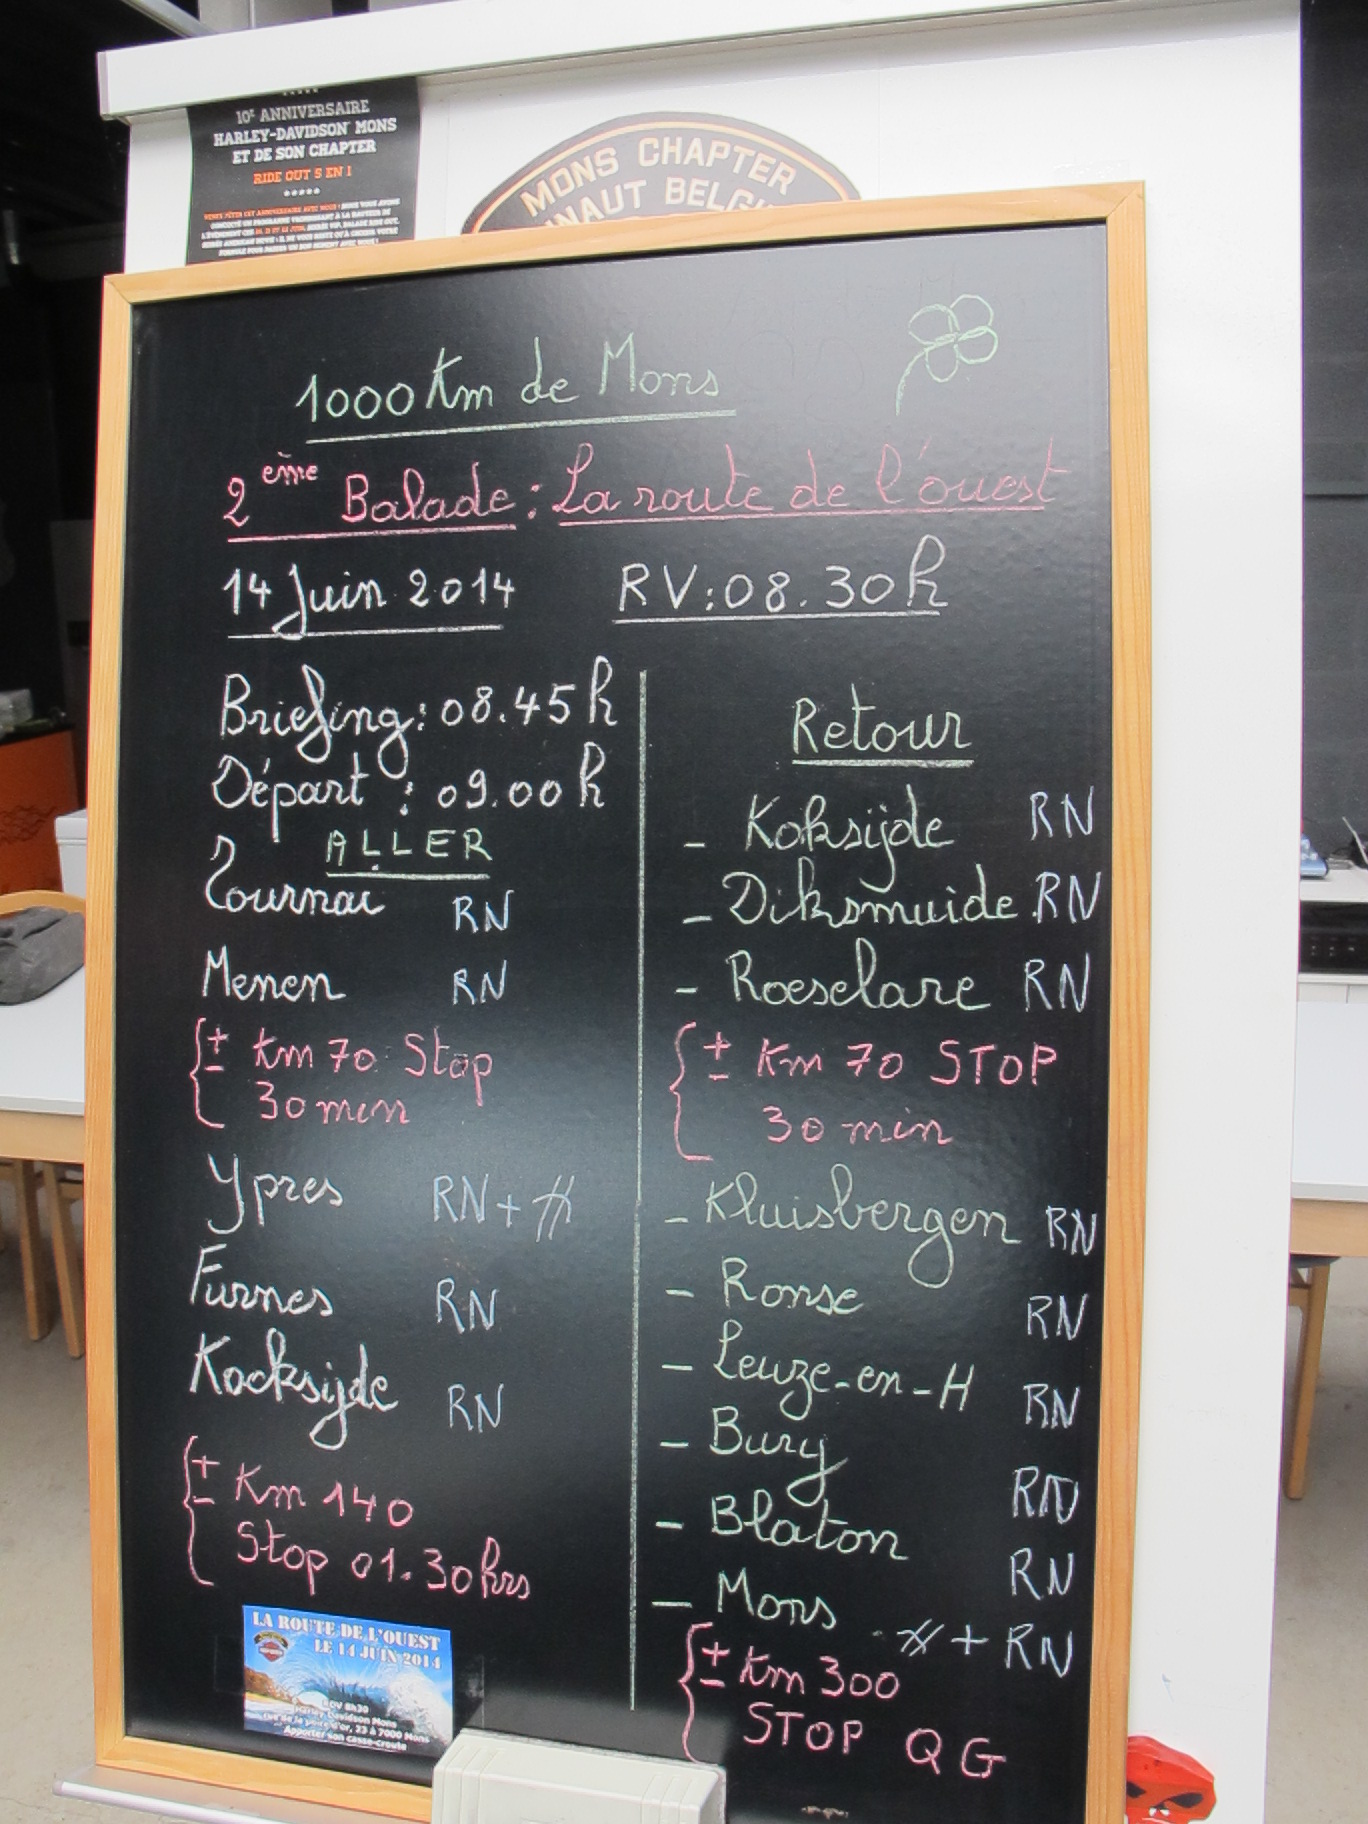 10e ANNIVERSAIRE
HARLEY-DAVIDSON MONS
ET DE SON CHAPTER
RIDE OUT 5 EN 1
MONS CHAPTER
NAUT BELGI
1000 Km de Mons
2ème Balade : La route de l'ouest
14 Juin 2014 RV : 08.30 h
Briefing : 08.45 h
Départ : 09.00 h
ALLER
Tournai RN
Menen RN
± Km 70 Stop
30 min
Ypres RN + H
Furnes RN
Kocksijde RN
± Km 140
Stop 01.30 hrs
Retour
- Koksijde RN
- Diksmuide RN
- Roeselare RN
± Km 70 STOP
30 min
- Kluisbergen RN
- Ronse RN
- Leuze-en-H RN
- Bury RN
- Blaton RN
- Mons H + RN
± Km 300
STOP QG
LA ROUTE DE L'OUEST
LE 14 JUIN 2014
RDV 8h30
Harley-Davidson Mons
rue de la poire d'or, 23 à 7000 Mons
Apporter son casse-croute